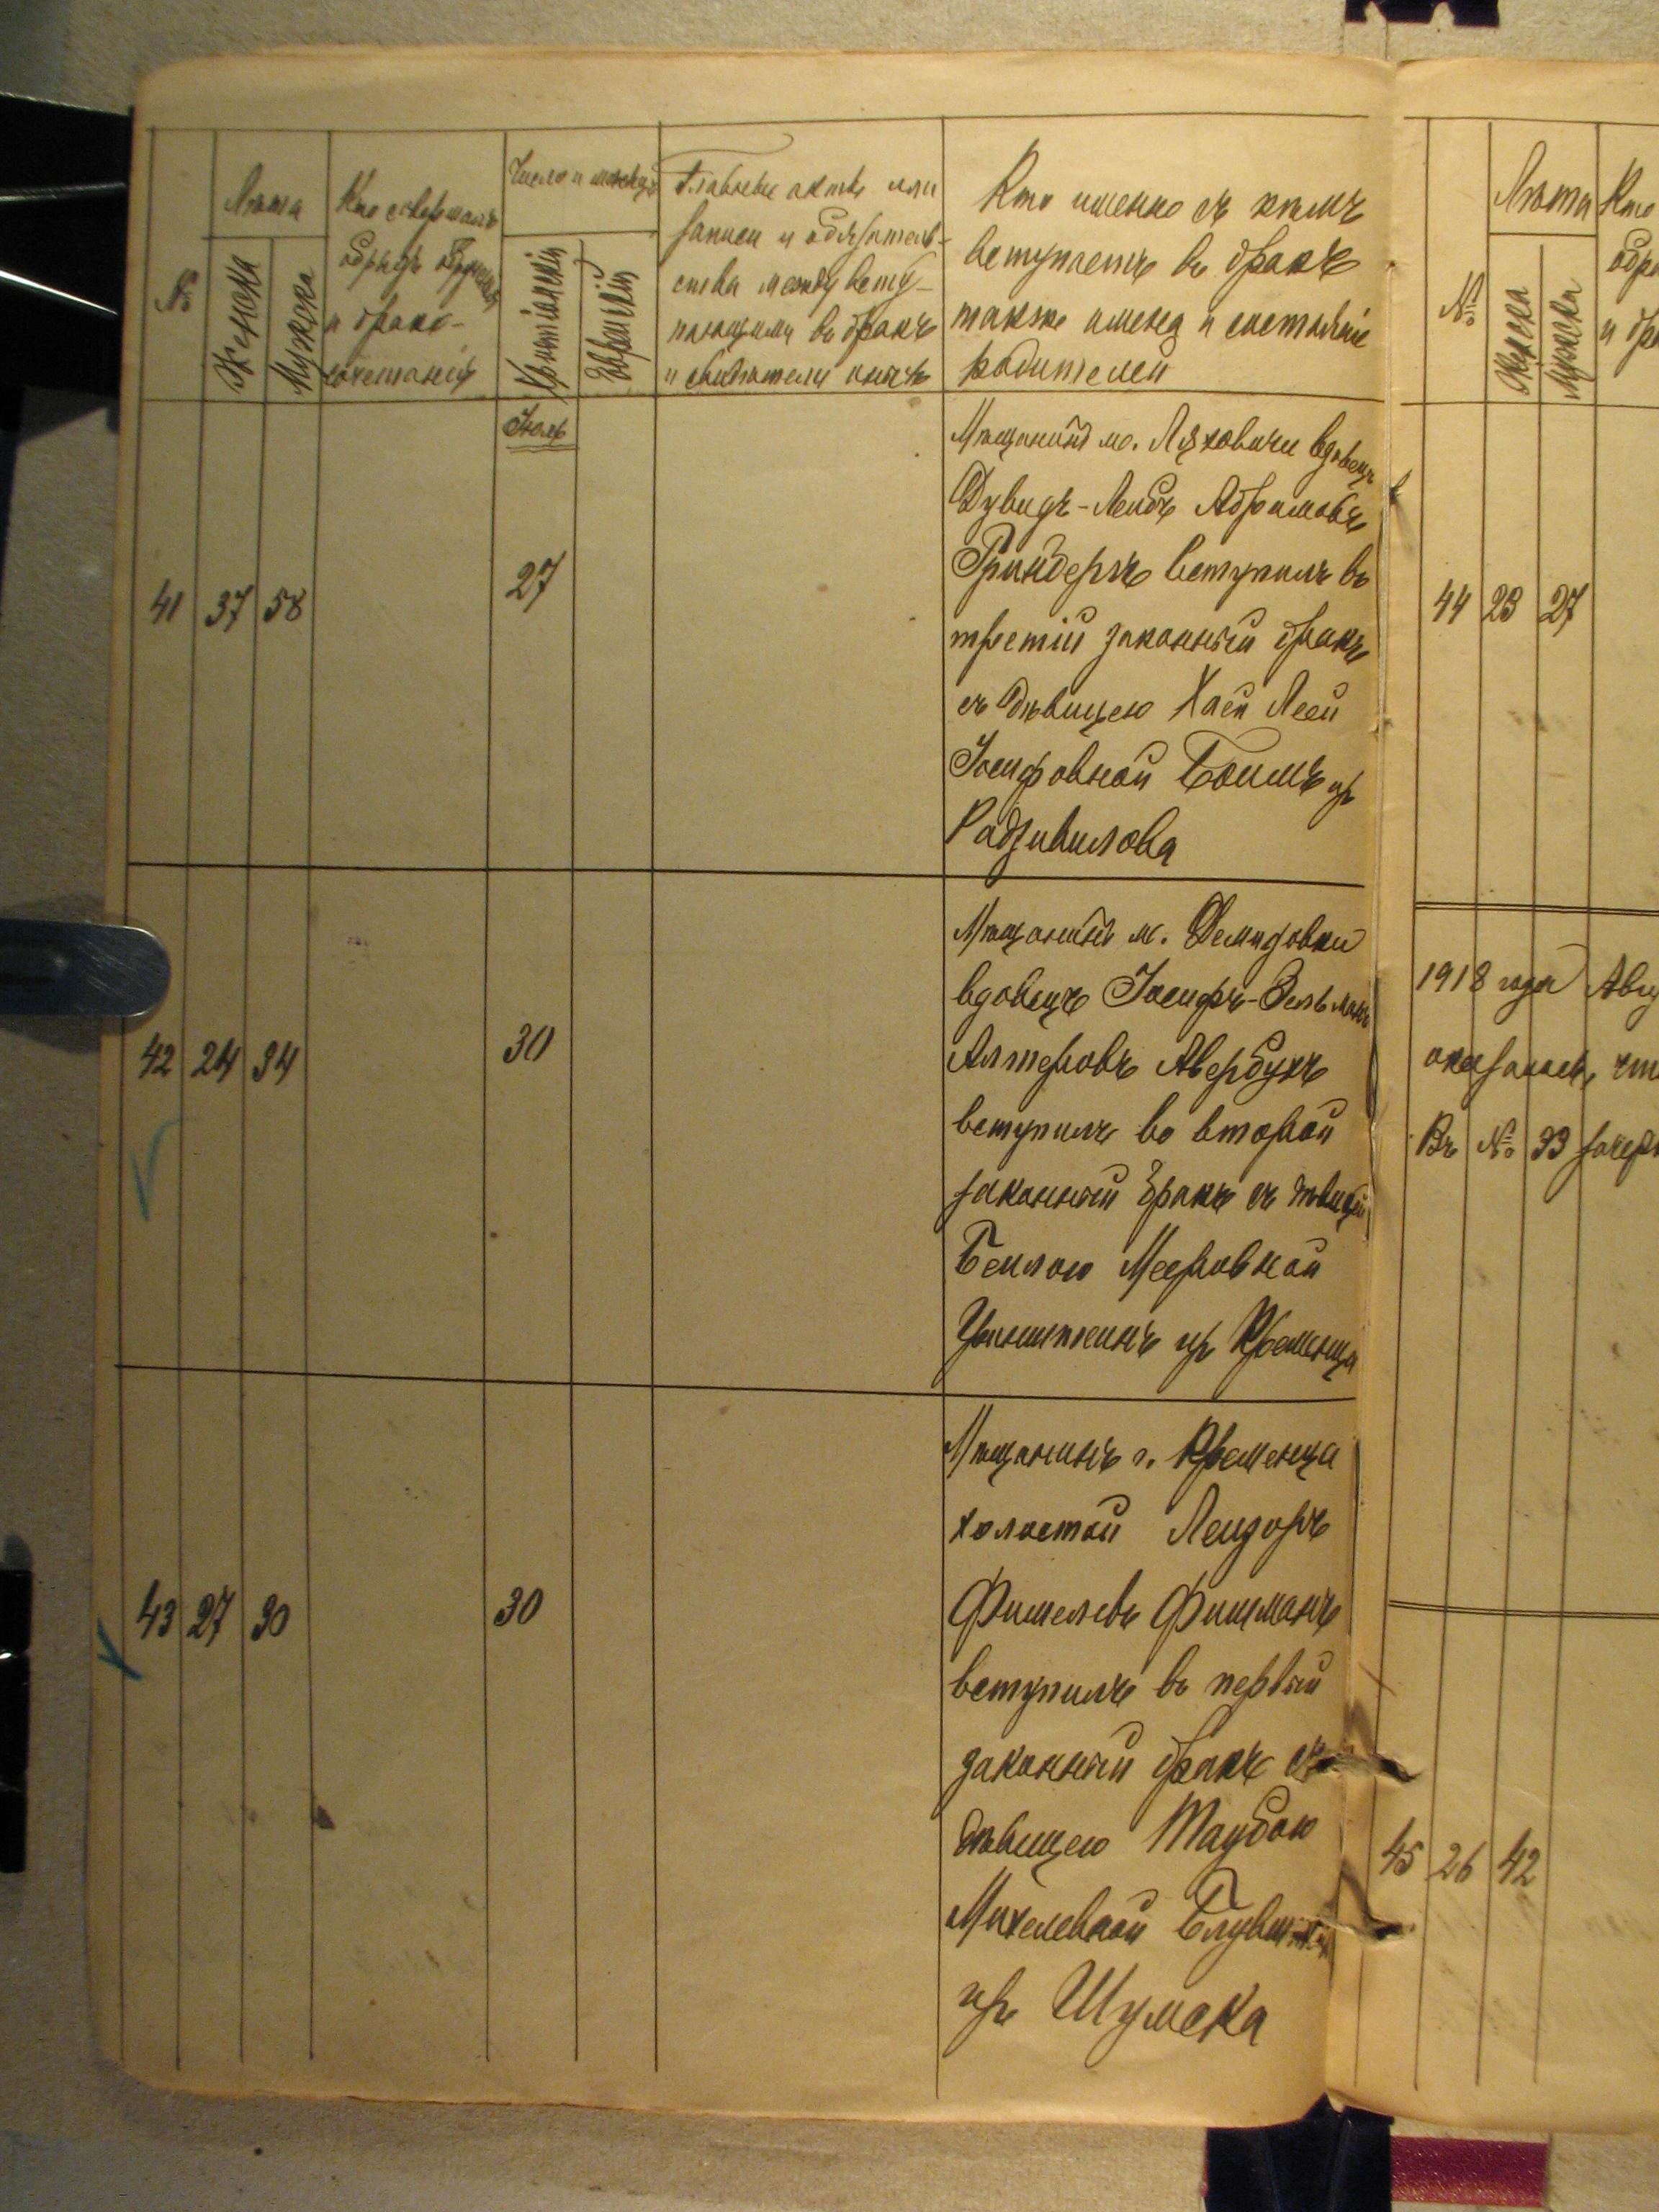 №
Лѣта
Женска
Мужска
Кто совершалъ
обрядъ обрученія
и брако-
сочетанія
Число и мѣсяцъ
Христіанскій
Еврейскій
Главные акты или
записи и обязатель-
ства между всту-
пающими въ бракъ
и свидѣтели оныхъ
Кто именно съ кѣмъ
вступаетъ въ бракъ
также имена и состояніе
родителей
41 37 58
Іюль
27
Мѣщанинъ м. Ляховичи вдовецъ
Дувидъ-Лейбъ Абрамовъ
вступилъ въ
третій законный бракъ
съ дѣвицею Хаей Леей
Іосифовной Боимъ изъ
Радзивилова
42 24 34
30
Мѣщанинъ м. Демидовки
вдовецъ Іосифъ-Зельманъ
Алтеровъ Авербухъ
вступилъ во второй
законный бракъ съ дѣвицей
Бейлою Мееровной
изъ Кременца
43 27 30
30
Мѣщанинъ г. Кременца
холостой Лейзоръ
Фишелевъ Фишманъ
вступилъ въ первый
законный бракъ съ
дѣвицею Таубою
Михелевной
изъ Шумска
№
Лѣта
Женска
Мужска
Кто
обря
и бра
44 23 27
1918 года Авгу
оказалось, что
Въ № 33 зачер
45 26 42